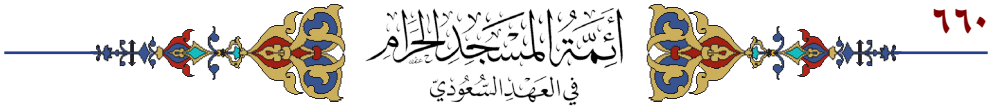 ٦٦٠
أَئِمَّةُ المَسْجِدِ الحَرَامِ
فِي العَهْدِ السُّعُودِيِّ